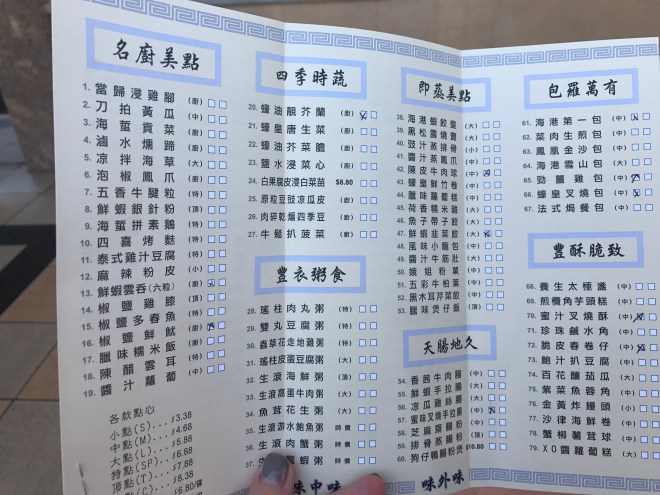 名廚美點
1. 當歸浸雞腳 (廚)
2. 刀拍黃瓜 (中)
3. 海蜇貢菜 (廚)
4. 滷水燻蹄 (廚)
5. 涼拌海草 (大)
6. 泡椒鳳爪 (廚)
7. 五香牛腱粒 (特)
8. 鮮蝦銀針粉 (頂)
9. 海蜇拼素鵝 (特)
10. 四喜烤麩 (特)
11. 泰式雞汁豆腐 (大)
12. 麻辣粉皮 (小)
13. 鮮蝦雲吞(六粒) (廚)
14. 椒鹽雞膝 (頂)
15. 椒鹽多春魚 (廚)
16. 椒鹽鮮魷 (廚)
17. 臘味糯米飯 (頂)
18. 陳醋雲耳 (大)
19. 醬汁蘿蔔 (中)
各款點心
小點(S)... $3.38
中點(M)... $4.68
大點(L)... $5.88
特點(SP)... $6.78
頂點(T)... $6.88
四季時蔬
20. 蠔油靚芥蘭 (廚)
21. 蠔皇唐生菜 (廚)
22. 蠔油芥菜膽 (廚)
23. 鹽水浸菜心 (廚)
24. 白果腐皮浸白菜苗 $8.80
25. 原粒豆豉涼瓜皮 (廚)
26. 肉碎乾煸四季豆 (廚)
27. 牛鬆扒菠菜 (廚)
豐衣粥食
28. 瑤柱肉丸粥 (特)
29. 雙丸豆腐粥 (特)
30. 蟲草花走地雞粥 (特)
31. 瑤柱皮蛋豆腐粥 (大)
32. 生滾海鮮粥 (頂)
33. 生滾窩蛋牛肉粥 (大)
34. 魚茸花生粥 (大)
35. 生滾游水鮑魚粥 時價
36. 生滾肉蟹粥 時價
蝦粥 時價
味中味
即蒸美點
38. 海港蝦餃皇 (大)
39. 黑松露燒賣 (頂)
40. 豉汁蒸排骨 (小)
41. 醬汁蒸鳳爪 (中)
42. 陳皮牛肉球 (中)
43. 蠔皇鮮竹卷 (中)
44. 臘味蘿蔔糕 (中)
45. 荷香糯米雞 (大)
46. 魚子帶子餃 (大)
47. 鮮蝦韭菜餃 (大)
48. 風味小籠包 (中)
49. 醬汁牛筋肚 (大)
50. 娥姐粉菓 (中)
51. 五彩牛柏葉 (中)
52. 黑木耳芹菜餃 (中)
53. 臘味煲仔飯 (頂)
天腸地久
54. 香茜牛肉腸 (大)
55. 鮮蝦手拉腸 (頂)
56. 涼瓜雞絲腸 (大)
57. 蜜味叉燒手拉腸 (中)
58. 芝麻齋腸粉 (中)
59. 排骨蒸腸粉 (大)
60. 狗仔鴨腸粉湯 $10.80
味外味
包羅萬有
61. 海港第一包 (中)
62. 菜肉生煎包 (中)
63. 鳳凰金沙包 (中)
64. 海港雪山包 (大)
65. 勁薑雞包 (中)
66. 蠔皇叉燒包 (中)
67. 法式焗餐包 (中)
豐酥脆致
68. 養生太極盞 (中)
69. 煎欖角芋頭糕 (中)
70. 蜜汁叉燒酥 (中)
71. 珍珠鹹水角 (中)
72. 脆皮春卷仔 (中)
73. 鮑汁扒豆腐 (中)
74. 百花釀茄瓜 (大)
75. 紫菜魚蓉角 (中)
76. 金黃炸饅頭 (小)
77. 沙律海鮮卷 (大)
78. 蟹柳薯茸球 (中)
79. XO醬蘿蔔糕 (大)